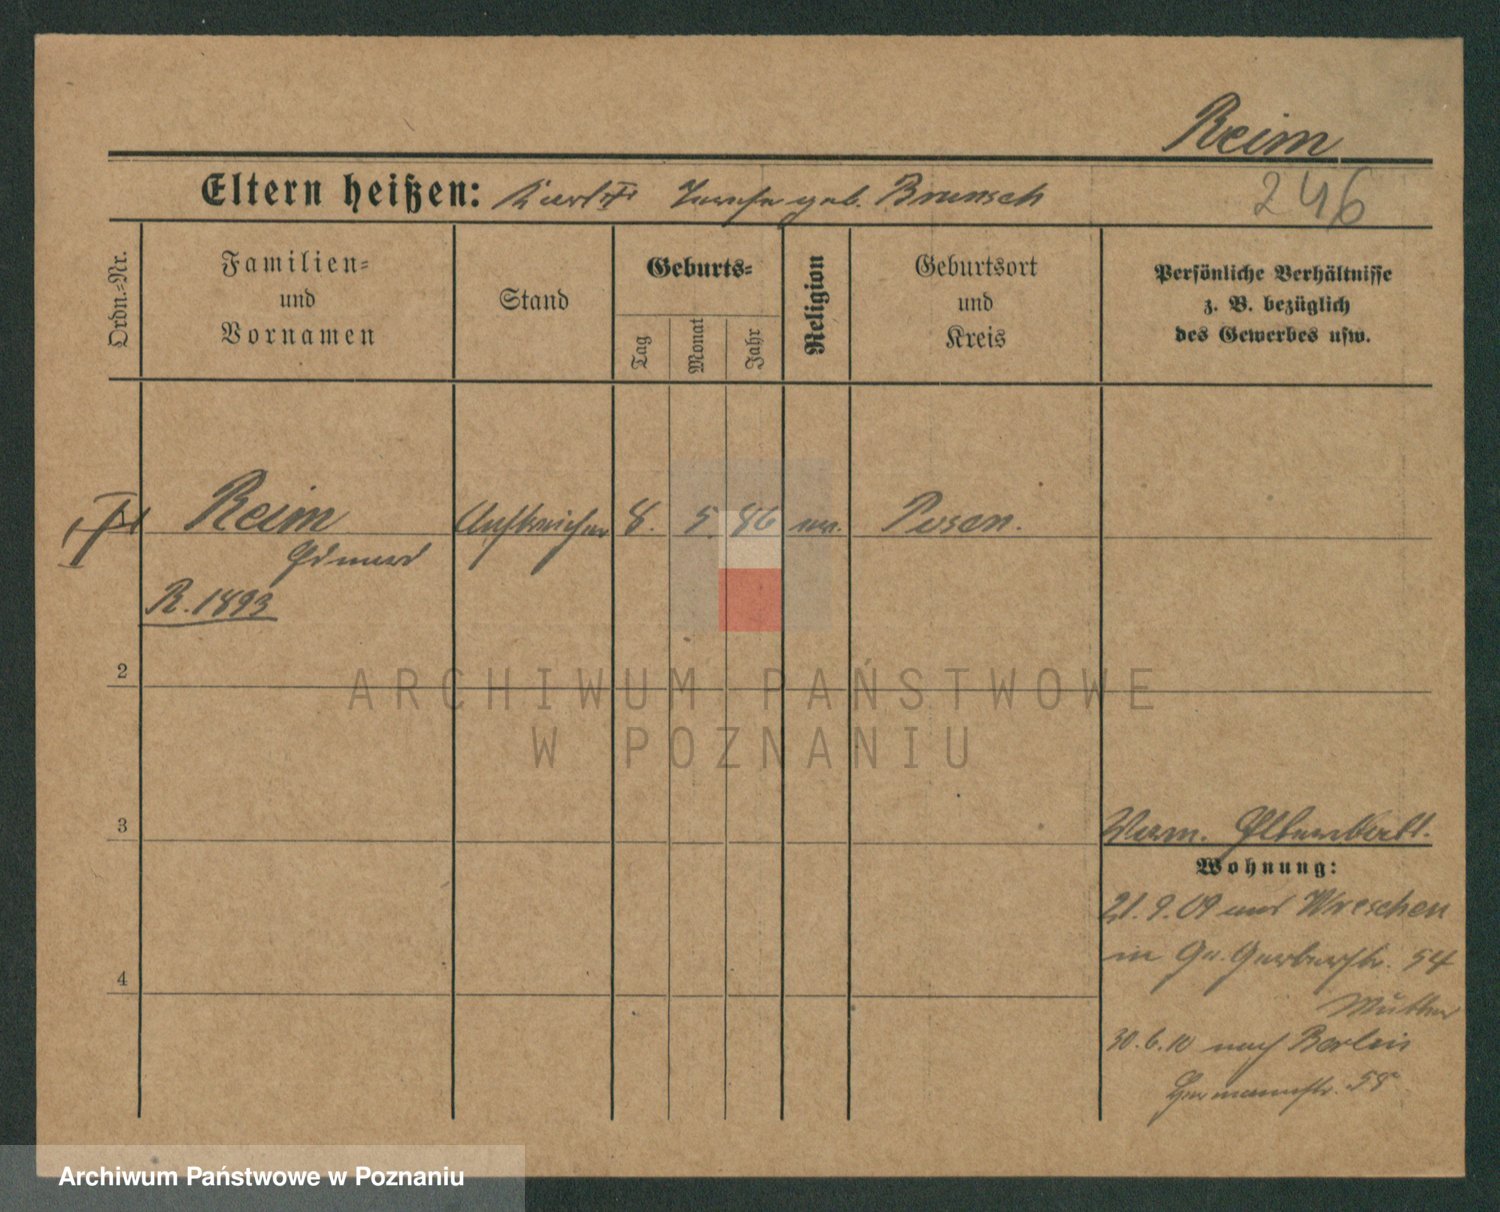 Reim
246
Eltern heißen: geb. Brunsch
Ordn.-Nr.
Familien-
und
Vornamen
Stand
Geburts-
Tag
Monat
Jahr
Religion
Geburtsort
und
Kreis
Persönliche Verhältnisse
z. B. bezüglich
des Gewerbes usw.
Reim 8. 5. 86 Posen.
R. 1893
2
ARCHIWUM PAŃSTWOWE
W POZNANIU
3
Wohnung:
21.9.09 aus Wreschen
in Gr. Gerberstr. 54
4
Mutter
30.6.10 nach Berlin
Hermannstr. 58
Archiwum Państwowe w Poznaniu